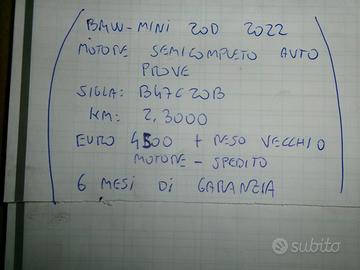 BMW-MINI 20D 2022
MOTORE SEMICOMPLETO AUTO
PROVE
SIGLA: B47C20B
KM: 2,3000
EURO 4500 + RESO VECCHIO
MOTORE - SPEDITO
6 MESI DI GARANZIA
subito